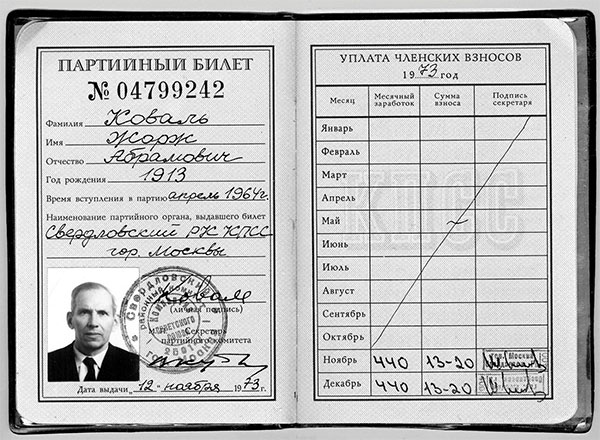 ПАРТИЙНЫЙ БИЛЕТ
№ 04799242
Фамилия Коваль
Имя Жорж
Отчество Абрамович
Год рождения 1913
Время вступления в партию апрель 1964г.
Наименование партийного органа, выдавшего билет
Свердловский РК КПСС
гор. Москвы
Коваль
(личная подпись)
Секретарь
партийного комитета
Дата выдачи „12" ноября 1973г.
УПЛАТА ЧЛЕНСКИХ ВЗНОСОВ
1973 год
Месяц Месячный заработок Сумма взноса Подпись секретаря
Январь
Февраль
Март
Апрель
Май
Июнь
Июль
Август
Сентябрь
Октябрь
Ноябрь 440 13-20
Декабрь 440 13-20
КПСС